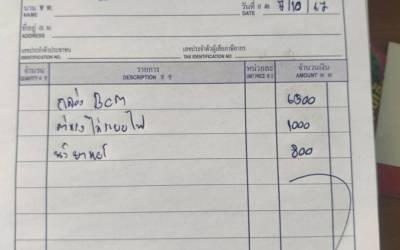 นาม
NAME
วันที่
DATE
/10/67
ที่อยู่
ADDRESS
เลขประจำตัวประชาชน
IDENTIFICATION NO.
เลขประจำตัวผู้เสียภาษีอากร
TAX IDENTIFICATION NO.
จำนวน
QUANTITY
รายการ
DESCRIPTION
หน่วยละ
UNIT PRICE
จำนวนเงิน
AMOUNT
กล่อง BCM 6500
1000
800